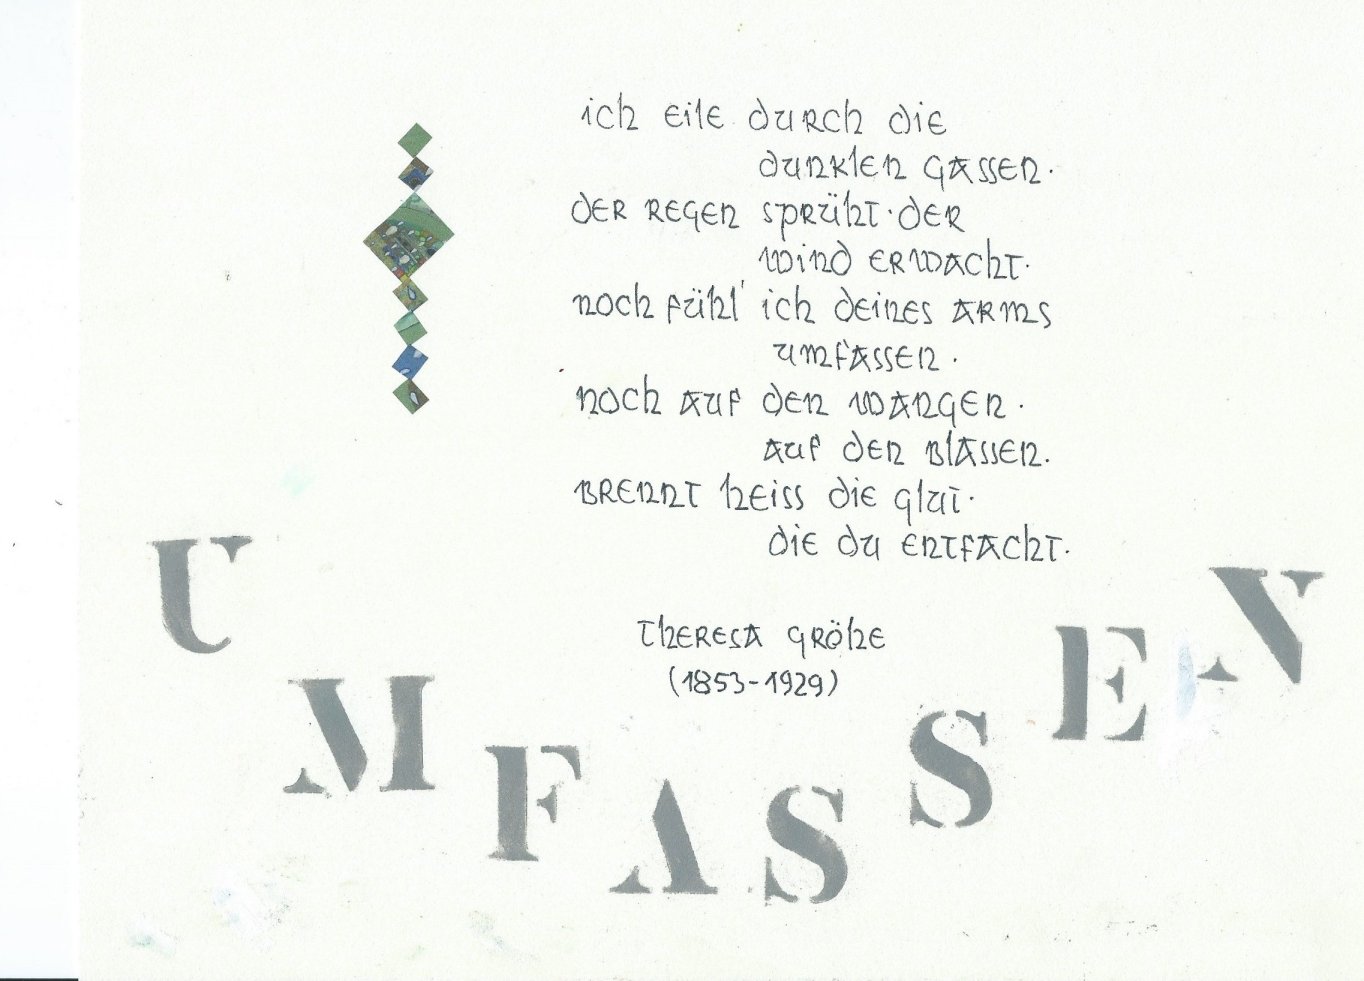 ich eile durch die
dunklen gassen.
der regen sprüht. der
wind erwacht.
noch fühl' ich deines arms
umfassen.
noch auf den wangen.
auf den blassen.
brennt heiss die glut.
die du entfacht.
theresa gröhe
(1853-1929)
UMFASSEN